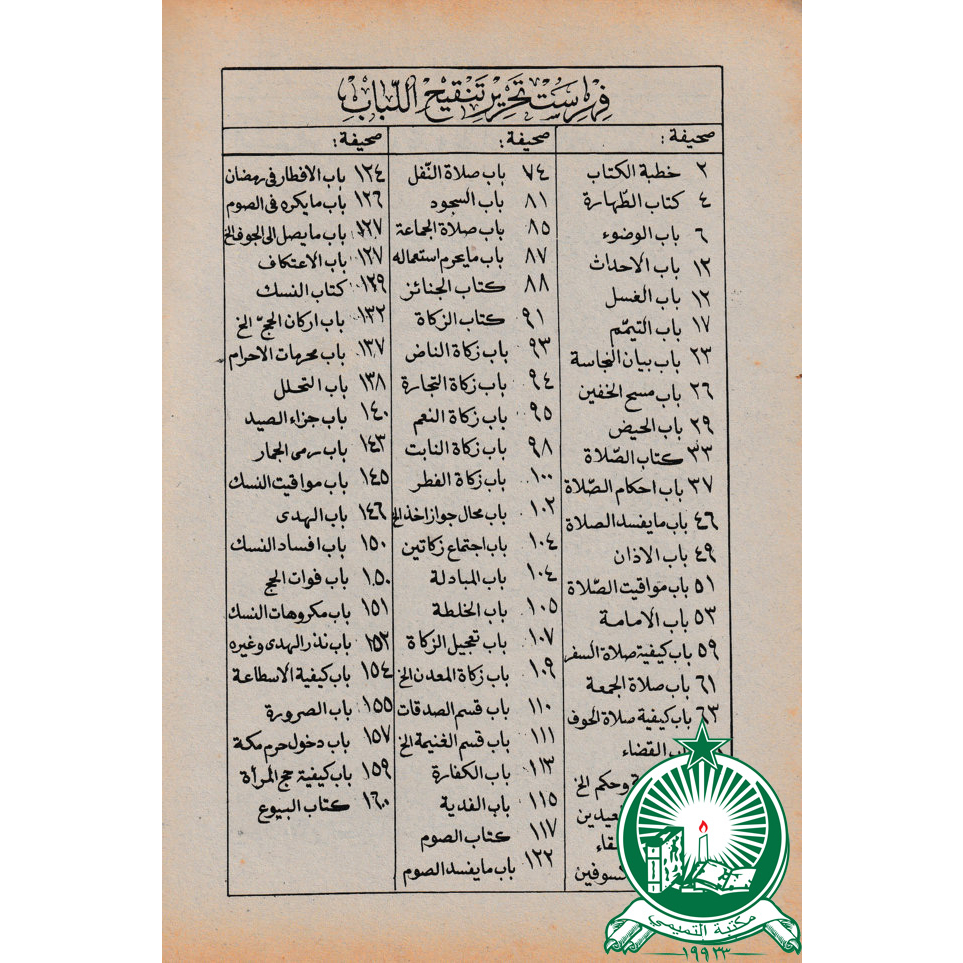 فهرست تحرير تنقيح اللباب
صحيفة:
٢ خطبة الكتاب
٤ كتاب الطّهارة
٦ باب الوضوء
١٢ باب الاحداث
١٢ باب الغسل
١٧ باب التيمّم
٢٣ باب بيان النجاسة
٢٦ باب مسح الخفين
٢٩ باب الحيض
٣٣ كتاب الصّلاة
٣٧ باب احكام الصّلاة
٤٦ باب مايفسد الصلاة
٤٩ باب الاذان
٥١ باب مواقيت الصّلاة
٥٣ باب الامامة
٥٩ باب كيفية صلاة السفر
٦١ باب صلاة الجمعة
٦٣ باب كيفية صلاة الخوف
القضاء
وحكم الخ
صحيفة:
٧٤ باب صلاة النّفل
٨١ باب السجود
٨٥ باب صلاة الجماعة
٨٧ باب مايحرم استعماله
٨٨ كتاب الجنائز
٩١ كتاب الزكاة
٩٣ باب زكاة الناض
٩٤ باب زكاة التجارة
٩٥ باب زكاة النعم
٩٨ باب زكاة النابت
١٠٠ باب زكاة الفطر
١٠٢ باب محال جواز اخذ الخ
١٠٤ باب اجتماع زكاتين
١٠٤ باب المبادلة
١٠٥ باب الخلطة
١٠٧ باب تعجيل الزكاة
١٠٩ باب زكاة المعدن الخ
١١٠ باب قسم الصدقات
١١١ باب قسم الغنيمة الخ
١١٣ باب الكفارة
١١٥ باب الفدية
١١٧ كتاب الصوم
١٢٢ باب مايفسد الصوم
صحيفة:
١٢٤ باب الافطار فى رمضان
١٢٦ باب مايكره فى الصوم
١٢٧ باب مايصل الى الجوف الخ
١٢٧ باب الاعتكاف
١٢٩ كتاب النسك
١٣٢ باب اركان الحجّ الخ
١٣٧ باب محرمات الاحرام
١٣٨ باب التحلل
١٤٠ باب جزاء الصيد
١٤٣ باب رمى الجمار
١٤٥ باب مواقيت النسك
١٤٦ باب الهدى
١٥٠ باب افساد النسك
١٥٠ باب فوات الحج
١٥١ باب مكروهات النسك
١٥٣ باب نذر الهدى وغيره
١٥٤ باب كيفية الاسطاعة
١٥٥ باب الصرورة
١٥٧ باب دخول حرم مكة
١٥٩ باب كيفية حج المرأة
١٦٠ كتاب البيوع
مكتبة التميمي
١٩٩٣٣